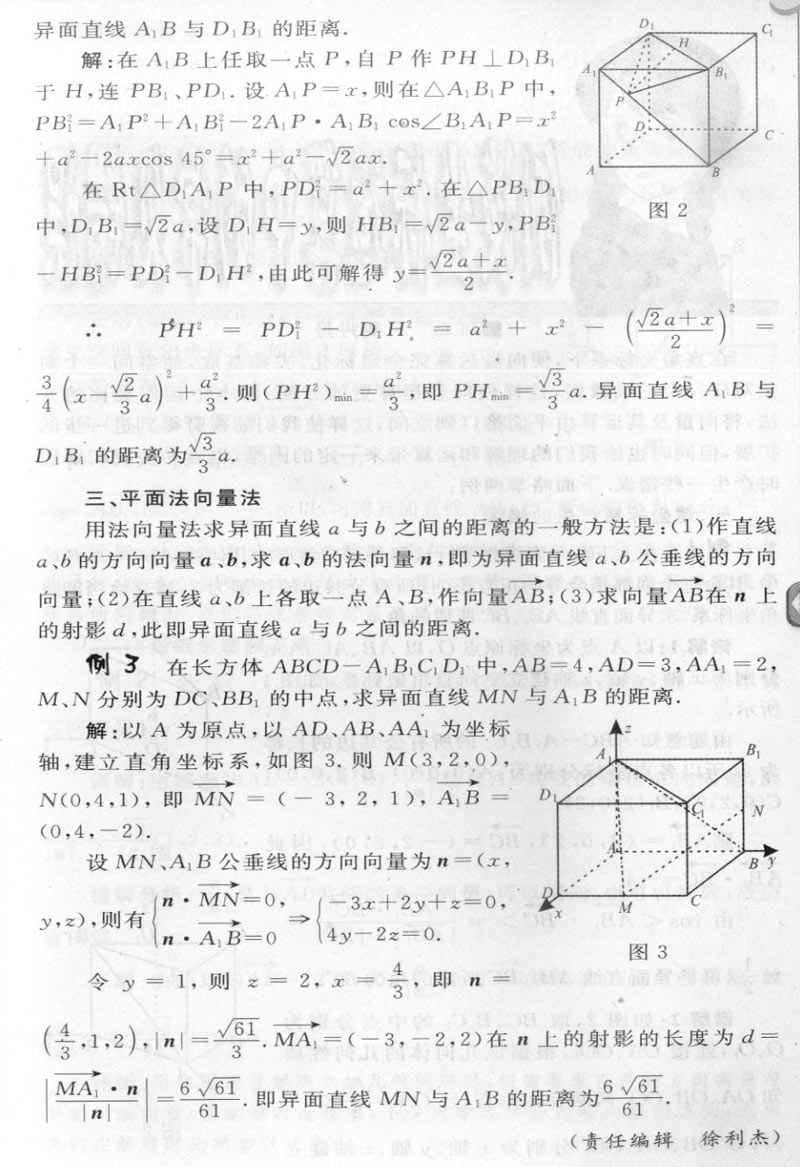 异面直线 A₁B 与 D₁B₁ 的距离.
解:在 A₁B 上任取一点 P,自 P 作 PH⊥D₁B₁
于 H,连 PB₁、PD₁. 设 A₁P=x,则在△A₁B₁P 中,
PB₁²=A₁P²+A₁B₁²-2A₁P·A₁B₁ cos∠B₁A₁P=x²
+a²-2axcos 45°=x²+a²-√2ax.
在 Rt△D₁A₁P 中,PD₁²=a²+x². 在△PB₁D₁
中,D₁B₁=√2a,设 D₁H=y,则 HB₁=√2a-y,PB₁²
-HB₁²=PD₁²-D₁H²,由此可解得 y=(√2a+x)/2.
∴ PH² = PD₁² - D₁H² = a² + x² - ((√2a+x)/2)² =
3/4(x-√2/3 a)²+a²/3. 则(PH²)min=a²/3,即 PHmin=√3/3 a. 异面直线 A₁B 与
D₁B₁ 的距离为√3/3 a.
D₁
C₁
H
A₁
B₁
P
D
C
A
B
图 2
三、平面法向量法
用法向量法求异面直线 a 与 b 之间的距离的一般方法是:(1)作直线
a、b 的方向向量 a、b,求 a、b 的法向量 n,即为异面直线 a、b 公垂线的方向
向量;(2)在直线 a、b 上各取一点 A、B,作向量AB;(3)求向量AB在 n 上
的射影 d,此即异面直线 a 与 b 之间的距离.
例 3 在长方体 ABCD-A₁B₁C₁D₁ 中,AB=4,AD=3,AA₁=2,
M、N 分别为 DC、BB₁ 的中点,求异面直线 MN 与 A₁B 的距离.
解:以 A 为原点,以 AD、AB、AA₁ 为坐标
轴,建立直角坐标系,如图 3. 则 M(3,2,0),
N(0,4,1), 即 MN = (-3,2,1), A₁B =
(0,4,-2).
设 MN、A₁B 公垂线的方向向量为 n=(x,
y,z),则有{n·MN=0, n·A₁B=0 ⇒{-3x+2y+z=0, 4y-2z=0.
令 y = 1, 则 z = 2, x = 4/3, 即 n =
z
B₁
D₁
C₁
N
B
y
D
x
M
C
图 3
(4/3,1,2),|n|=√61/3. MA₁=(-3,-2,2)在 n 上的射影的长度为 d=
|MA₁·n/|n||=6√61/61. 即异面直线 MN 与 A₁B 的距离为6√61/61.
(责任编辑 徐利杰)